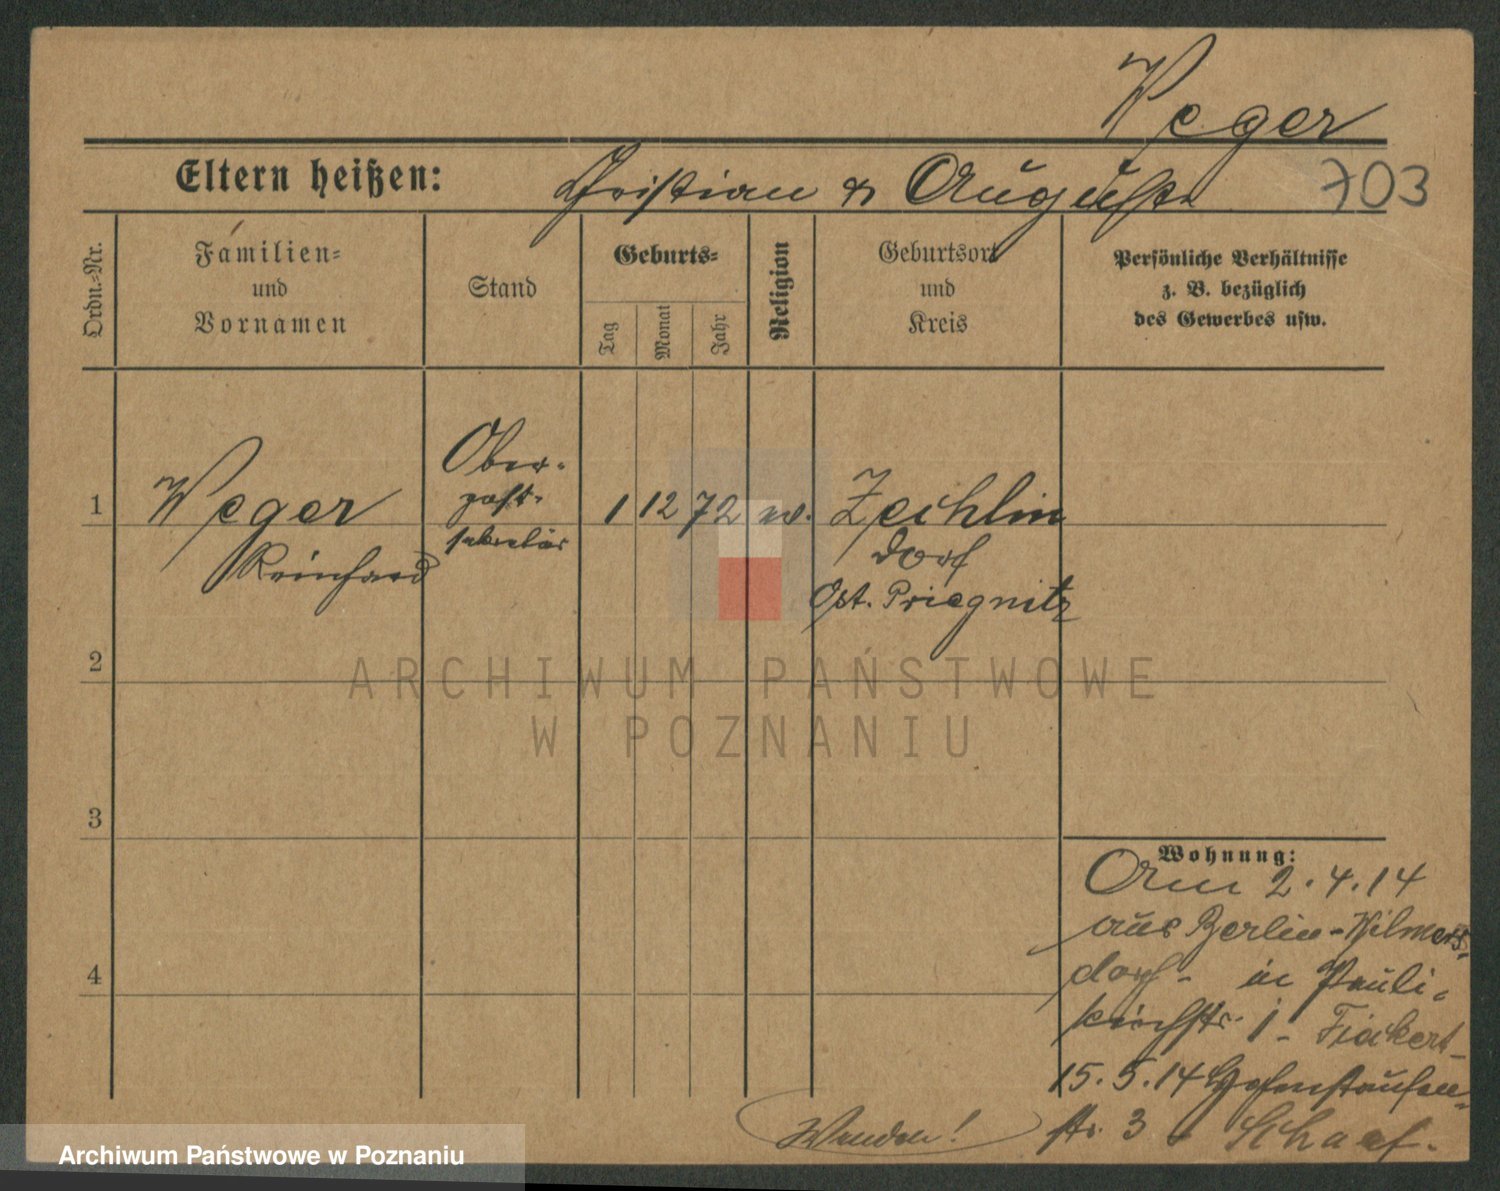 Weger
Eltern heißen: Christian & Auguste 703
Ordn.-Nr.
Familien-
und
Vornamen
Stand
Geburts-
Tag
Monat
Jahr
Religion
Geburtsort
und
Kreis
Persönliche Verhältnisse
z. B. bezüglich
des Gewerbes usw.
1 Weger Ober- 1 12 72 ev. Zechlin
Reinhard post- dorf
sekretär Ost. Priegnitz
2
3
4
ARCHIWUM PAŃSTWOWE
W POZNANIU
Wohnung:
2.4.14
aus Berlin-Wilmers-
dorf - in Pauli-
kirchstr. 1 - Fickert
15.5.14 Hohenstaufen-
str. 3 - Schaaf.
Wenden!
Archiwum Państwowe w Poznaniu